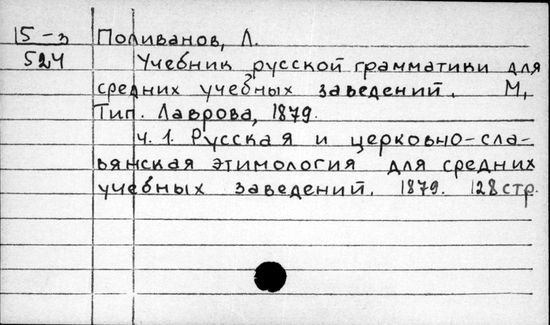 15-3 Поливанов, Л.
524 Учебник русской грамматики для
средних учебных заведений. М,
Тип. Лаврова, 1879.
ч. 1. Русская и церковно-сла-
вянская этимология для средних
учебных заведений. 1879. 128 стр.